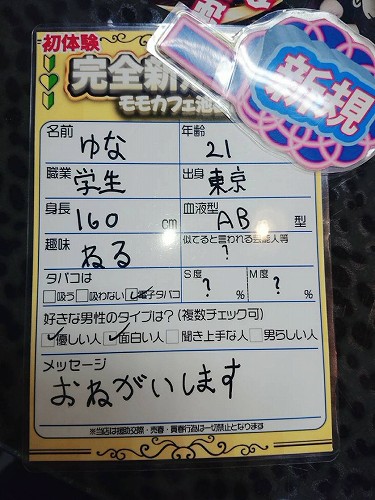 初体験
完全新規
モモカフェ池
新規
名前 ゆな 年齢 21
職業 学生 出身 東京
身長 160 cm 血液型 AB 型
趣味 ねる 似てると言われる芸能人等 ?
タバコは S度 ? % M度 ? %
吸う 吸わない 電子タバコ
好きな男性のタイプは?(複数チェック可)
優しい人 面白い人 聞き上手な人 男らしい人
メッセージ
おねがいします
※当店は援助交際・売春・買春行為は一切禁止となります